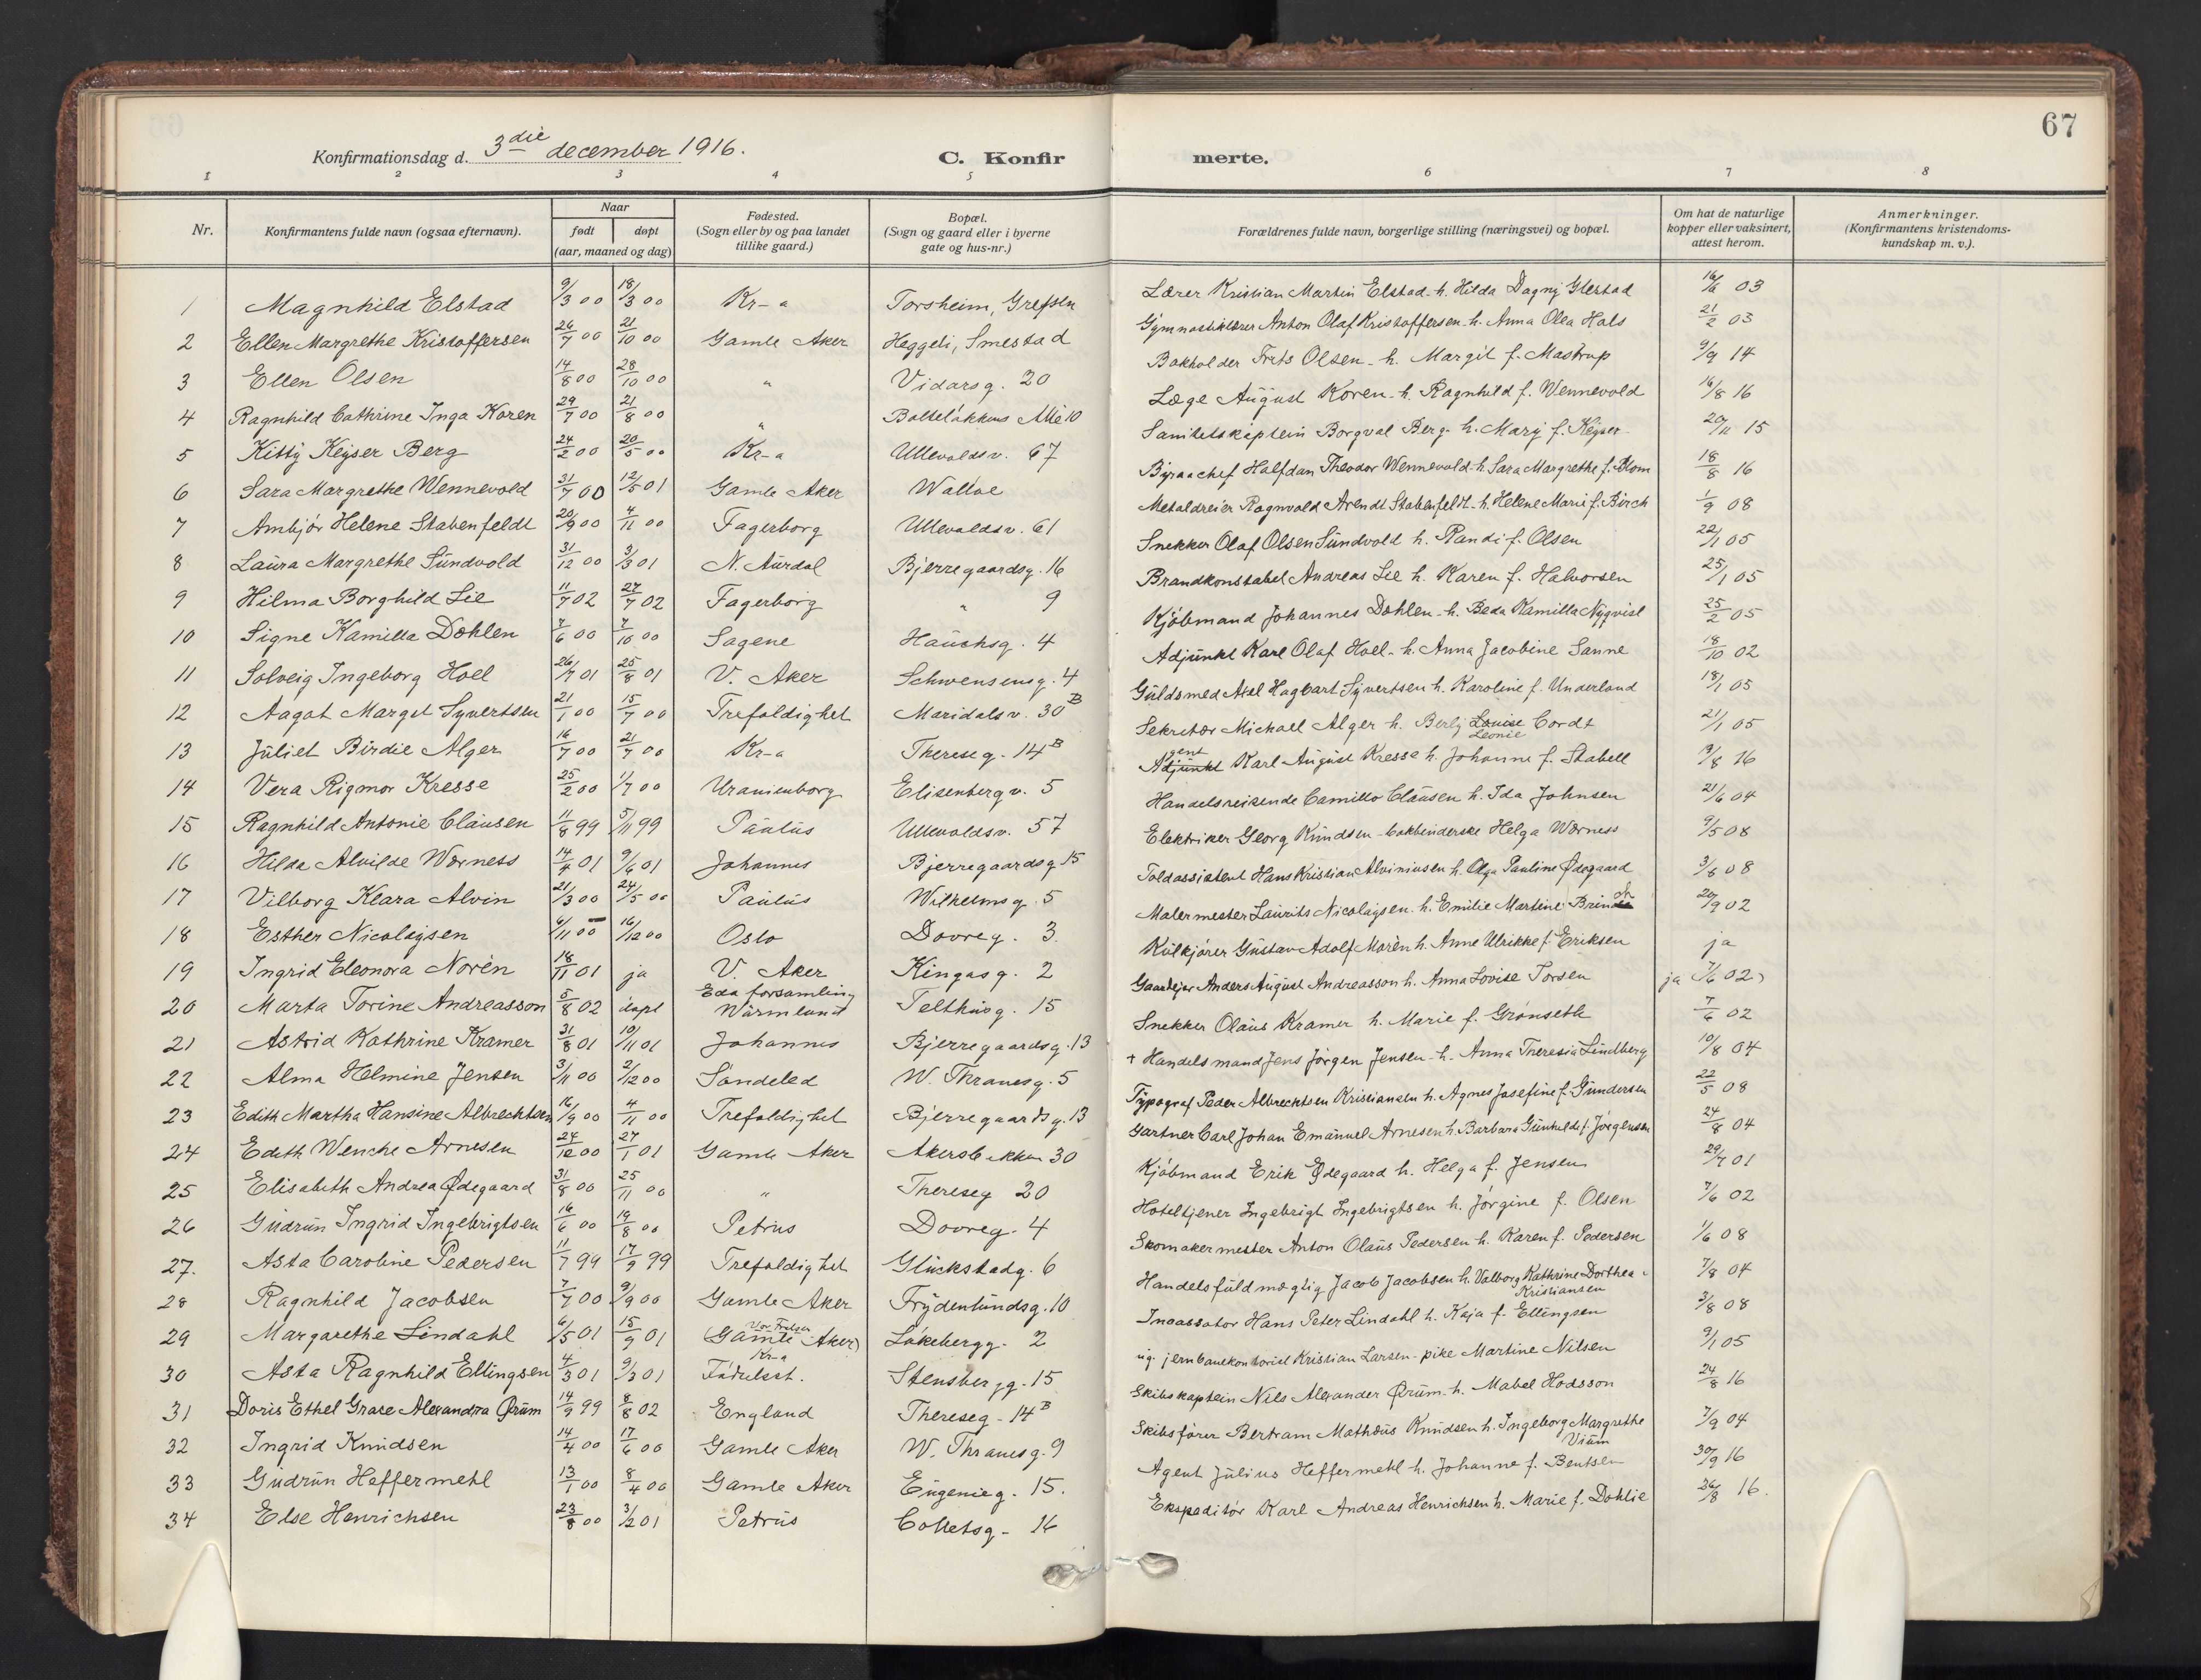 67
Konfirmationsdag d. 3die december 1916.
C. Konfirmerte.
1 2 3 4 5 6 7 8
Nr.
Konfirmantens fulde navn (ogsaa efternavn).
Naar
født døpt
(aar, maaned og dag)
Fødested.
(Sogn eller by og paa landet
tillike gaard.)
Bopæl.
(Sogn og gaard eller i byerne
gate og hus-nr.)
Forældrenes fulde navn, borgerlige stilling (næringsvei) og bopæl.
Om hat de naturlige
kopper eller vaksinert,
attest herom.
Anmerkninger.
(Konfirmantens kristendoms-
kundskap m. v.).
1 Magnhild Elstad 9/3 00 18/3 00 Kr-a Torsheim, Grefsen Lærer Kristian Martin Elstad - h. Hilda Dagny Glestad 16/6 03
2 Ellen Margrethe Kristoffersen 26/7 00 21/10 00 Gamle Aker Heggeli, Smestad Gymnastiklærer Anton Olaf Kristoffersen - h. Anna Olea Hals 21/2 03
3 Ellen Olsen 14/8 00 28/10 00 " Vidarsg. 20 Bokholder Frits Olsen - h. Margit f. Mastrup 9/9 14
4 Ragnhild Cathrine Inga Koren 29/7 00 21/8 00 " Bolteløkkens Allé 10 Læge August Koren - h. Ragnhild f. Wennevold 16/8 16
5 Kitty Keyser Berg 24/2 00 20/5 00 Kr-a Ullevoldsv. 67 Sanitetskaptein Borgval Berg - h. Mary f. Keyser 20/11 15
6 Sara Margrethe Wennevold 31/7 00 12/5 01 Gamle Aker Walløe Byraachef Halfdan Theodor Wennevold - h. Sara Margrethe f. Blom 18/8 16
7 Ambjør Helene Stabenfeldt 20/9 00 4/11 00 Fagerborg Ullevoldsv. 61 Metaldreier Ragnvald Arendt Stabenfeldt - h. Helene Marie f. Birch 1/9 08
8 Laura Margrethe Sundvold 31/12 00 3/3 01 N. Aurdal Bjerregaardsg. 16 Snekker Olaf Olsen Sundvold h. Randi f. Olsen 22/1 05
9 Hilma Borghild Lie 11/7 02 27/7 02 Fagerborg " 9 Brandkonstabel Andreas Lie h. Karen f. Halvorsen 25/1 05
10 Signe Kamilla Dæhlen 7/6 00 7/10 00 Sagene Hauchsg. 4 Kjøbmand Johannes Dæhlen - h. Beda Kamilla Nyqvist 25/2 05
11 Solveig Ingeborg Hoel 26/7 01 25/8 01 V. Aker Schwensensg. 4 Adjunkt Karl Olaf Hoel - h. Anna Jacobine Sanne 18/10 02
12 Aagot Margit Syvertsen 21/1 00 15/7 00 Trefoldighet Maridalsv. 30B Guldsmed Axel Hagbart Syvertsen h. Karoline f. Underland 18/1 05
13 Juliet Birdie Alger 16/7 00 21/7 00 Kr-a Thereseg. 14B Sekretær Michael Alger h. Berly Louise Leonie Cordt 21/1 05
14 Vera Rigmor Kresse 25/2 00 1/7 00 Uranienborg Elisenbergv. 5 Adjunkt gent Karl August Kresse h. Johanne f. Stabell 9/8 16
15 Ragnhild Antonie Clausen 11/8 99 5/11 99 Paulus Ullevoldsv. 57 Handelsreisende Camillo Clausen h. Ida Johnsen 21/6 04
16 Hilda Alvilde Wærness 14/4 01 9/6 01 Johannes Bjerregaardsg 15 Elektriker Georg Knudsen - bokbinderske Helga Wærness 9/5 08
17 Vilborg Klara Alvin 21/3 00 24/5 00 Paulus Wilhelmsg. 5 Toldassistent Hans Kristian Alviniusen h. Olga Pauline Ødegaard 3/6 08
18 Esther Nicolaysen 6/11 00 16/12 00 Oslo Dovreg. 3. Malermester Laurits Nicolaysen - h. Emilie Martine 20/9 02
19 Ingrid Eleonora Norén 18/11 01 ja V. Aker Kingosg. 2 Kulkjører Gustav Adolf Norén h. Anne Ulrikke f. Eriksen ja
20 Marta Torine Andreasson 5/8 02 døpt Eda forsamling Wärmland Telthusg. 15 Gaardejer Anders August Andreasson h. Anna Lovise Torsen ja (7/6 02)
21 Astrid Kathrine Kramer 31/8 01 10/11 01 Johannes Bjerregaardsg. 13 Snekker Olaus Kramer h. Marie f. Grønseth 7/6 02
22 Alma Helmine Jensen 3/11 00 2/12 00 Søndeled W. Thranesg. 5 + Handelsmand Jens Jørgen Jensen - h. Anna Theresia Lindberg 10/8 04
23 Edith Martha Hansine Albrechtsen 16/9 00 4/11 00 Trefoldighet Bjerregaardsg. 13 Typograf Peder Albrechtsen Kristiansen h. Agnes Josefine f. Gundersen 22/5 08
24 Edith Wenche Arnesen 24/12 00 27/1 01 Gamle Aker Akersbakken 30 Gartner Carl Johan Emanuel Arnesen h. Barbara Gunhilde f. Jørgensen 24/8 04
25 Elisabeth Andrea Ødegaard 31/8 00 25/11 00 " Thereseg 20 Kjøbmand Erik Ødegaard h. Helga f. Jensen 29/7 01
26 Gudrun Ingrid Ingebrigtsen 16/6 00 19/8 00 Petrus Dovreg. 4 Hoteltjener Ingebrigt Ingebrigtsen h. Jørgine f. Olsen 7/6 02
27. Asta Caroline Pedersen 11/7 99 17/9 99 Trefoldighet Glückstadg. 6 Skomakermester Anton Olaus Pedersen h. Karen f. Pedersen 1/6 08
28 Ragnhild Jacobsen 7/7 00 9/9 00 Gamle Aker Frydenlundsg. 10 Handelsfuldmægtig Jacob Jacobsen h. Valborg Kathrine Dorthea Kristiansen 7/8 04
29 Margarethe Lindahl 6/5 01 15/9 01 Vor Frelser (Gamle Aker) Løkebergg. 2 Incassator Hans Peter Lindahl h. Kaja f. Ellingsen 3/8 08
30 Asta Ragnhild Ellingsen 4/3 01 9/3 01 Kr-a Fødselsst. Stensbergg. 15 ug. jernbanekontorist Kristian Larsen - pike Martine Nilsen 9/1 05
31 Doris Ethel Grace Alexandra Ørum 14/9 99 8/8 02 England Thereseg - 14B Skibskaptein Nils Alexander Ørum - h. Mabel Hodsson 24/8 16
32 Ingrid Knudsen 14/4 00 17/6 00 Gamle Aker W. Thranesg. 9 Skibsfører Bertram Mathæus Knudsen h. Ingeborg Margrethe Vium 7/9 04
33 Gudrun Heffermehl 13/1 00 8/4 00 Gamle Aker Eugenieg. 15. Agent Julius Heffermehl h. Johanne f. Bentsen 30/9 16
34 Else Henrichsen 23/8 00 3/2 01 Petrus Colletsg - 16 Ekspeditør Karl Andreas Henrichsen h. Marie f. Dahlie 26/8 16.